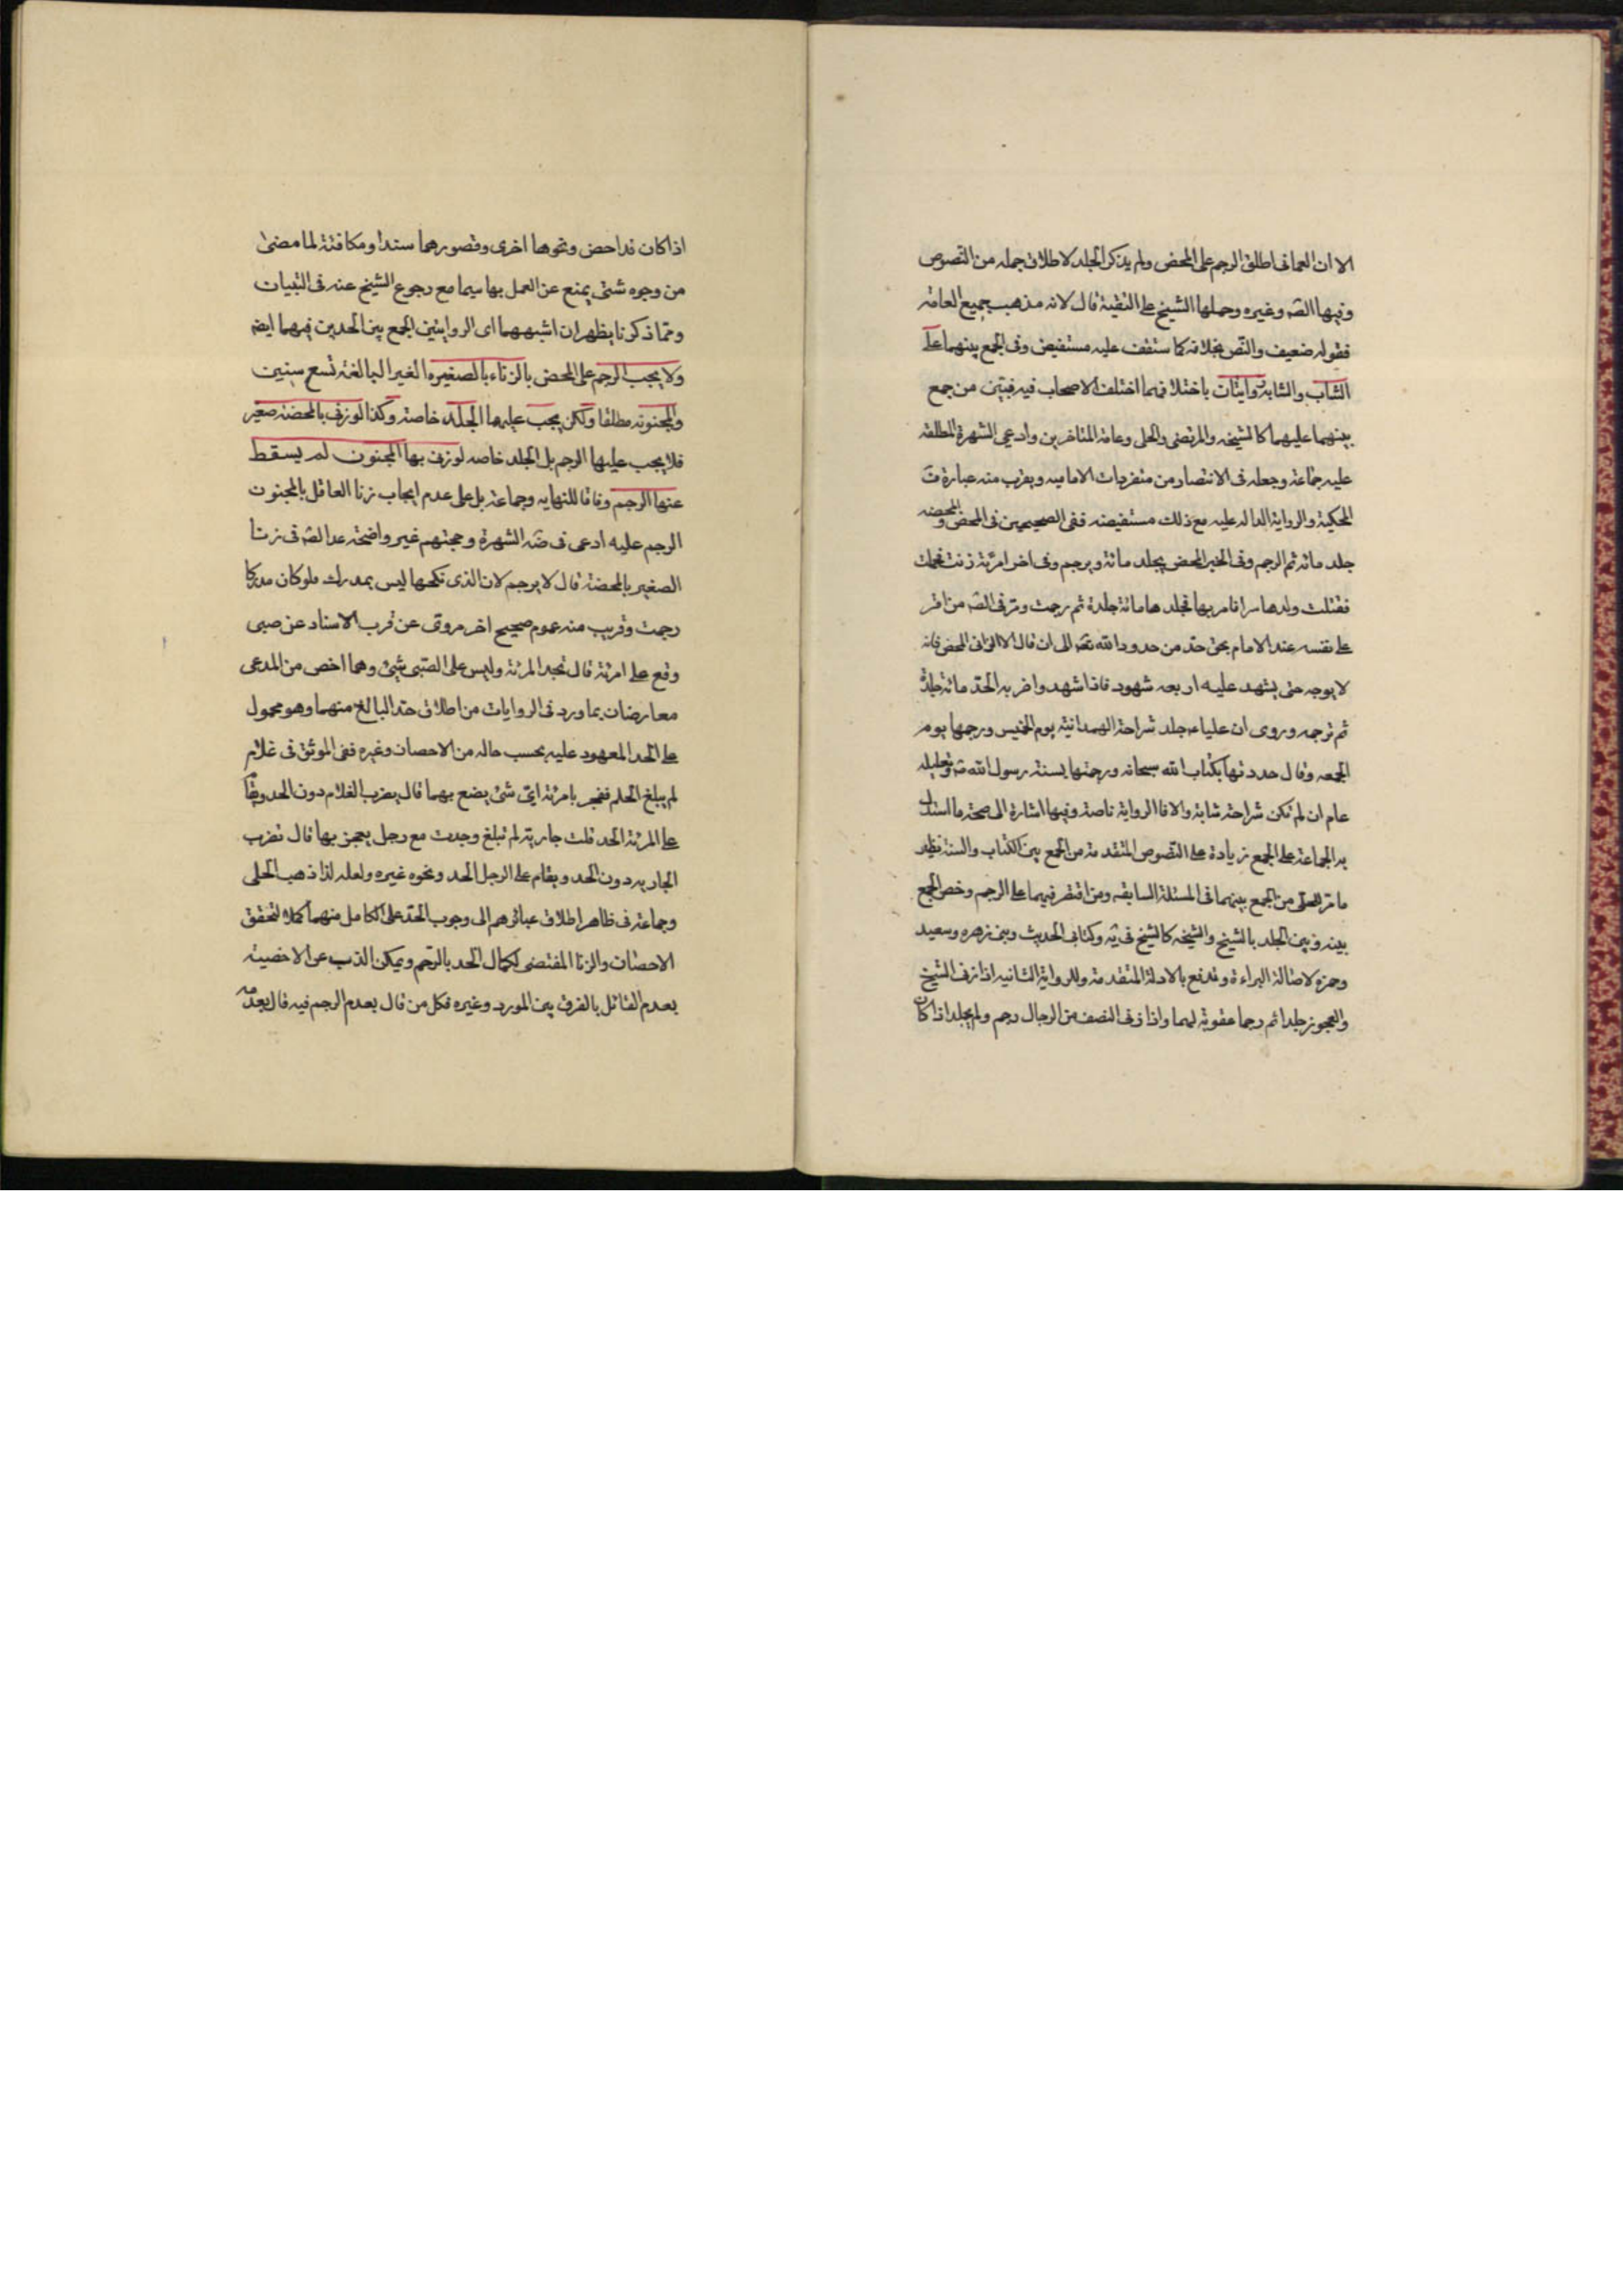 الا ان العمانی اطلق الرجم علی المحصن ولم یذکر الجلد لاطلاق جمله من النصوص
وفیها الصّ وغیره وحملها الشیخ علی التقیة قال لانه مذهب جمیع العامة
فقوله ضعیف والنص بخلافه کما ستقف علیه مستفیض وفی الجمع بینهما علی
الشاب والشابة روایتان باختلافهما اختلف الاصحاب فیه فبین من جمع
بینهما علیهما کالشیخین والمرتضی والحلی وعامة المتاخرین وادعی الشهرة المطلقة
علیه جماعة وجعله فی الانتصار من متفردات الامامیه ویقرب منه عبارة ف
المحکیة والروایة الداله علیه مع ذلک مستفیضه ففی الصحیحین فی المحصن والمحصنه
جلد مائة ثم الرجم وفی الخبر المحصن یجلد مائة ویرجم وفی اخر امرئة زنت فحملت
فقتلت ولدها سرا فامر بها فجلدها مائة جلدة ثم رجمت ومرّ فی الصّ من اقر
علی نفسه عند الامام بحق حدّ من حدود الله تعه الی ان قال الا الزانی المحصن فانه
لا یرجمه حتی یشهد علیه اربعه شهود فاذا شهدوا ضربه الحدّ مائة جلدة
ثم یرجمه وروی ان علیاء جلد شراحة الهمدانیة یوم الخمیس ورجمها یوم
الجمعه وقال حددتها بکتاب الله سبحانه ورجمتها بسنة رسول الله ص وتعلیله
عام ان لم تکن شراحة شابة والا فالروایة ناصة وفیها اشارة الی صحة ما استدل
به الجماعة علی الجمع زیادة علی النصوص المتقدمة من الجمع بین الکتاب والسنة فظهر
ما مرّ من الجمع بینهما فی المسئلة السابقه ومن اقتصر فیهما علی الرجم وخص الجمع
بینه وبین الجلد بالشیخ والشیخه کالشیخ فی یه وکتابی الحدیث وبنی زهره وسعید
وحمزه لاصالة البراءة وتدفع بالادلة المتقدمة وللروایة الثانیه اذا زنی الشیخ
والعجوز جلدا ثم رجما عقوبة لهما واذا زنی النصف من الرجال رجم ولم یجلد اذا کان
اذا کان قد احصن ونحوها اخری وقصورهما سندا ومکافئة لما مضی
من وجوه شتی یمنع عن العمل بها سیما مع رجوع الشیخ عنه فی التبیان
ومما ذکرنا یظهر ان اشبههما ای الروایتین الجمع بین الحدین فیهما ایضه
ولا یجب الرجم علی المحصن بالزناء بالصغیره الغیر البالغة تسع سنین
والمجنونه مطلقا ولکن یجب علیهما الجلد خاصة وکذا لو زنی بالمحصنه صغیر
فلا یجب علیها الرجم بل الجلد خاصه لو زنی بها المجنون لم یسقط
عنها الرجم وفاقا للنهایه وجماعة بل علی عدم ایجاب زنا العاقل بالمجنون
الرجم علیه ادعی فی ضه الشهرة وحجتهم غیر واضحة عدا الصّ فی زنا
الصغیر بالمحصنة قال لا یرجم لان الذی نکحها لیس بمدرک ولو کان مدرکا
رجمت وقریب منه عموم صحیح اخر مروی عن قرب الاسناد عن صبی
وقع علی امرئة قال تجلد المرئة ولیس علی الصبی شیئ وهما اخص من المدعی
معارضان بما ورد فی الروایات من اطلاق حدّ البالغ منهما وهو محمول
علی الحد المعهود علیه بحسب حاله من الاحصان وغیره ففی الموثق فی غلام
لم یبلغ الحلم فجر بامرئة ایّ شئ یصنع بهما قال یضرب الغلام دون الحد ویقام
علی المرئة الحد قلت جاریة لم تبلغ وجدت مع رجل یفجر بها قال تضرب
الجاریه دون الحد ویقام علی الرجل الحد ونحوه غیره ولعله لذا ذهب الحلی
وجماعة فی ظاهر اطلاق عبائرهم الی وجوب الحدّ علی الکامل منهما کملا لتحقق
الاحصان والزنا المقتضی لکمال الحد بالرجم ویمکن الذب عن الاخصیة
بعدم القائل بالفرق بین المورد وغیره فکل من قال بعدم الرجم فیه قال بعدمه